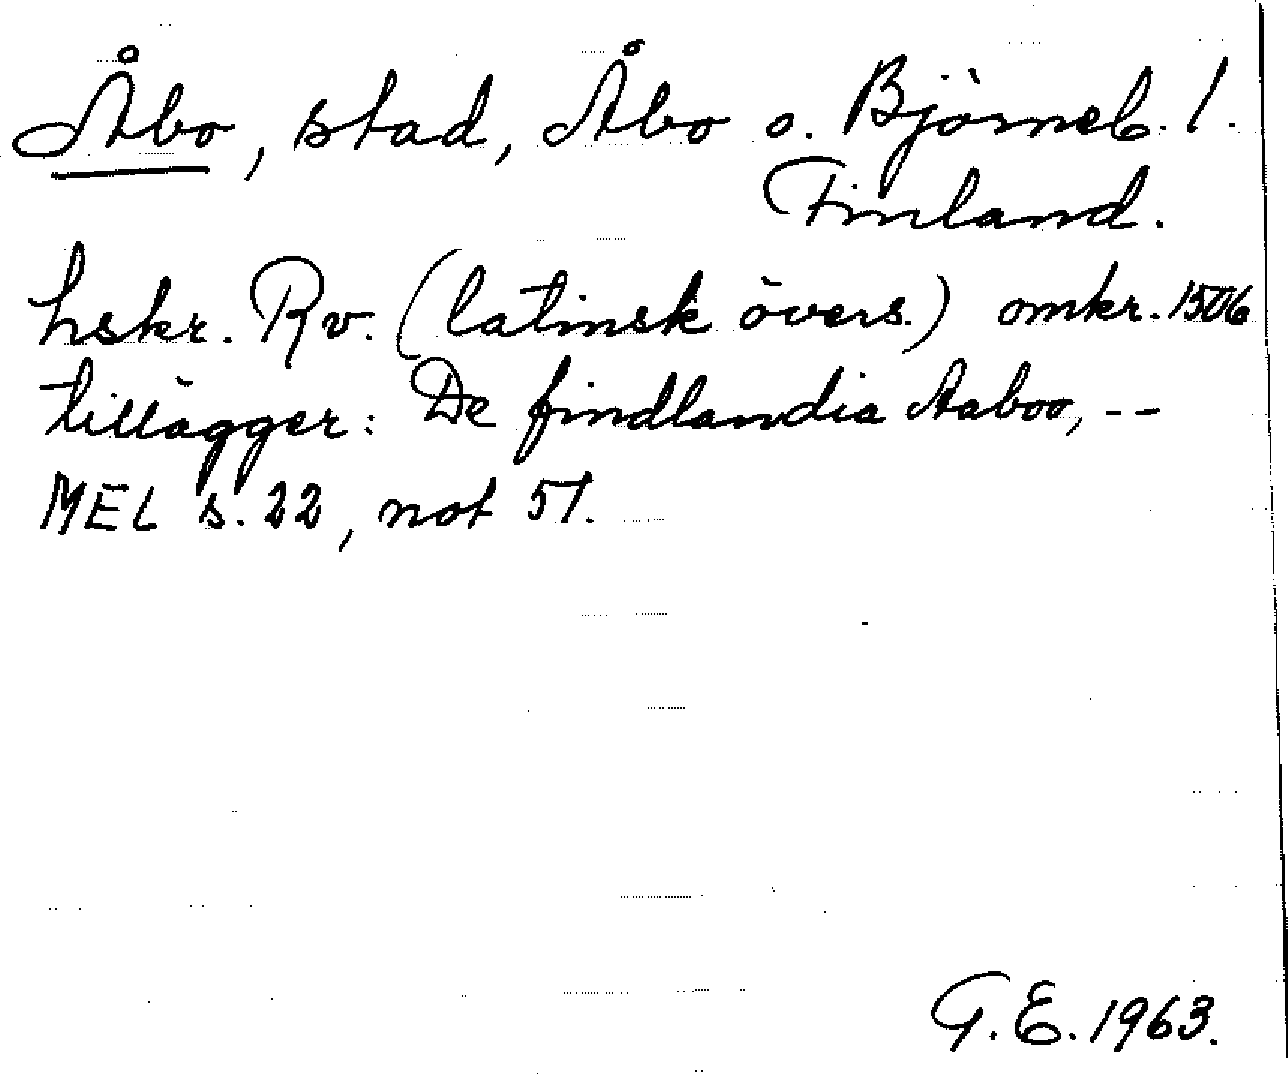 Åbo, stad, Åbo o. Björneb. l.
Finland.
hskr. Rv. (latinsk övers.) omkr. 1506
tillägger: De findlandia Aaboo, --
MEL s. 22, not 51.
G.E. 1963.